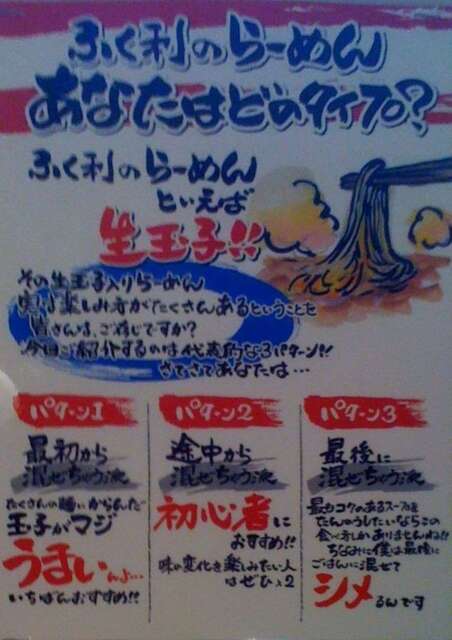 ふく利のらーめん
あなたはどのタイプ?
ふく利のらーめん
といえば
生玉子!!
その生玉子入りらーめん
実は楽しみ方がたくさんあるということを
皆さんは、ご存じですか?
今回ご紹介するのは代表的な3パターン!!
さてさてあなたは…
パターン1
最初から
混ぜちゃう派
たくさんの麺にからんだ
玉子がマジ
うまいんよ…
いちばんおすすめ!!
パターン2
途中から
混ぜちゃう派
初心者に
おすすめ!!
味の変化を楽しみたい人
はぜひ×2
パターン3
最後に
混ぜちゃう派
最もコクのあるスープを
たんのうしたいならこの
食べ方しかありませんね!!
ちなみに僕は最後に
ごはんに混ぜて
シメるんです